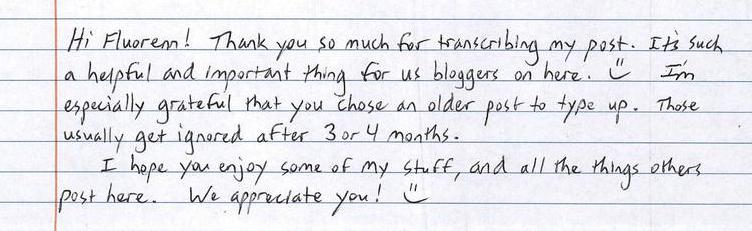 Hi Fluorenn! Thank you so much for transcribing my post. It's such
a helpful and important thing for us bloggers on here. ὠ0
I'm
especially grateful that you chose an older post to type up. Those
usually get ignored after 3 or 4 months.
I hope you enjoy some of my stuff, and all the things others
post here. We appreciate you! )